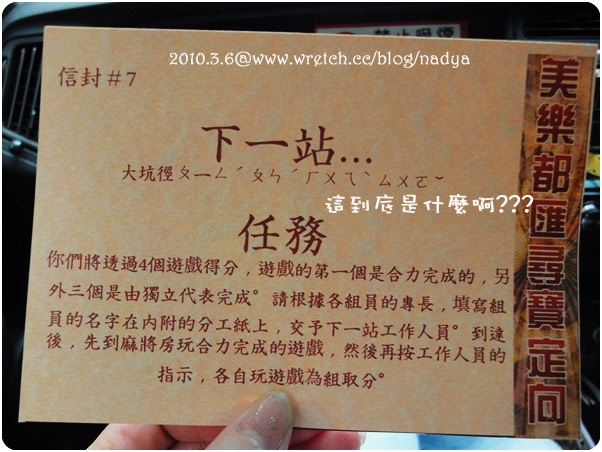 2010.3.6@www.wretch.cc/blog/nadya
信封#7
下一站...
大坑徑ㄆㄧㄥˊㄆㄣˊㄏㄨㄟˋㄙㄨㄛˇ
這到底是什麼啊???
任務
你們將透過4個遊戲得分，遊戲的第一個是合力完成的，另
外三個是由獨立代表完成。請根據各組員的專長，填寫組
員的名字在內附的分工紙上，交予下一站工作人員。到達
後，先到麻將房玩合力完成的遊戲，然後再按工作人員的
指示，各自玩遊戲為組取分。
美樂都匯尋寶定向